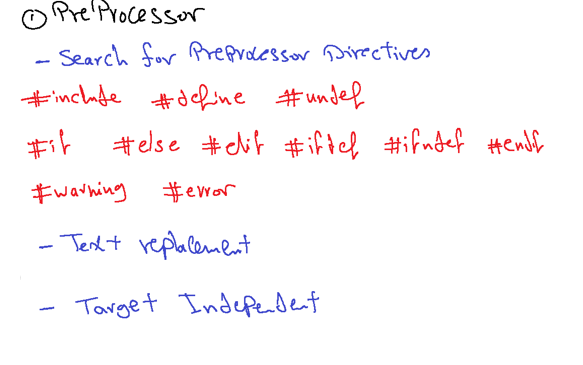 ① PreProcessor
- Search for Preprocessor Directives
#include #define #undef
#if #else #elif #ifdef #ifndef #endif
#warning #error
- Text replacement
- Target Independent